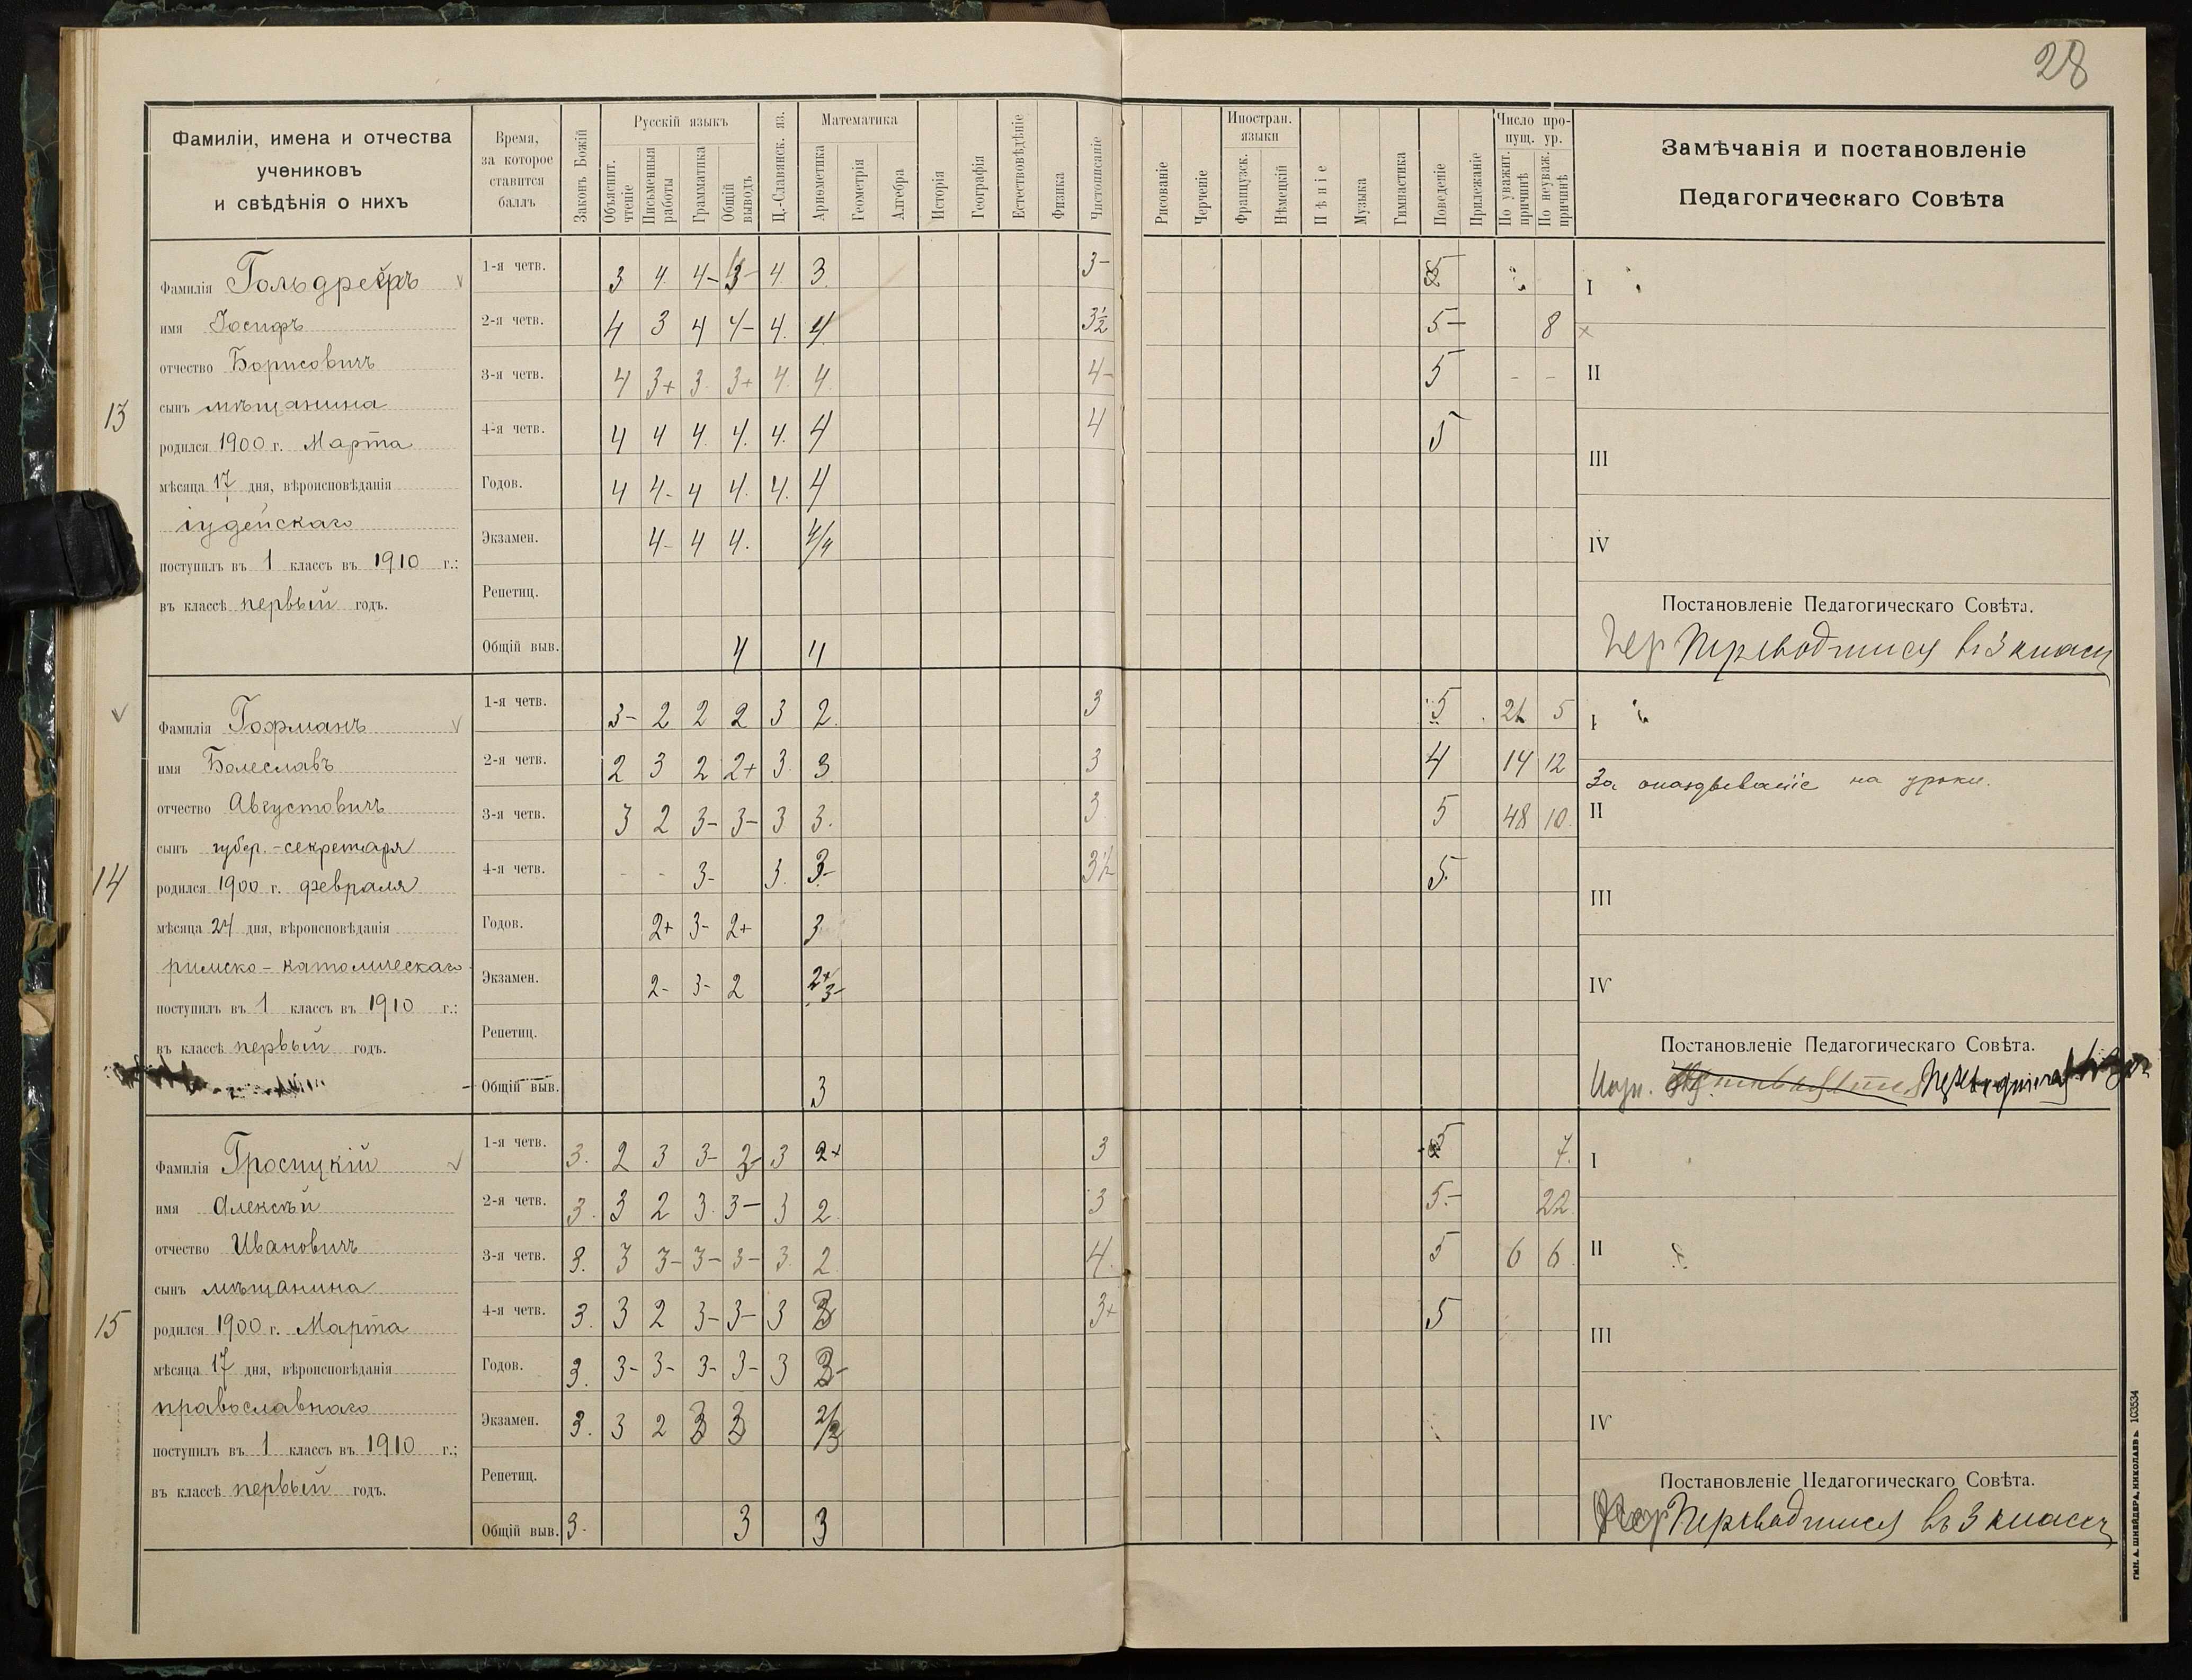 28
Фамиліи, имена и отчества
учениковъ
и свѣдѣнія о нихъ
Время,
за которое
ставится
баллъ
Законъ Божій
Русскій языкъ
Объяснит. чтеніе
Письменныя работы
Грамматика
Общій выводъ
Ц.-Славянск. яз.
Математика
Ариѳметика
Геометрія
Алгебра
Исторія
Географія
Естествовѣдѣніе
Физика
Чистописаніе
Рисованіе
Черченіе
Иностран. языки
Французск.
Нѣмецкій
Пѣніе
Музыка
Гимнастика
Поведеніе
Прилежаніе
Число пропущ. ур.
По уважит. причинѣ
По неуваж. причинѣ
Замѣчанія и постановленіе
Педагогическаго Совѣта
13
Фамилія
имя Іосифъ
отчество Борисовичъ
сынъ мѣщанина
родился 1900 г. Марта
мѣсяца 17 дня, вѣроисповѣданія
іудейскаго
поступилъ въ 1 классъ въ 1910 г.:
въ классѣ первый годъ.
1-я четв. 3 4 4- 4 3 3-
2-я четв. 4 3 4 4- 4. 4 3½ 5- 8
3-я четв. 4 3+ 3 3+ 4 4 4- 5 - -
4-я четв. 4 4 4 4 4 4 4 5
Годов. 4 4- 4 4 4 4
Экзамен. 4- 4 4. 4/4
Репетиц.
Общій выв. 4 4
I
II
III
IV
Постановленіе Педагогическаго Совѣта.
Пер Переводится въ 3 классъ
14
Фамилія Гофманъ
имя Болеславъ
отчество Августовичъ
сынъ губер.-секретаря
родился 1900 г. февраля
мѣсяца 24 дня, вѣроисповѣданія
римско-католическаго
поступилъ въ 1 классъ въ 1910 г.:
въ классѣ первый годъ.
1-я четв. 3- 2 2 2 3 2. 3 5 5
2-я четв. 2 3 2 2+ 3 3 3 4 14 12
3-я четв. 3 2 3- 3- 3 3. 3 5 48 10
4-я четв. - - 3- 3. 3- 3½ 5
Годов. 2+ 3- 2+ 3
Экзамен. 2- 3- 2 2+/3-
Репетиц.
Общій выв. 3
I
За опаздываніе на уроки.
II
III
IV
Постановленіе Педагогическаго Совѣта.
15
Фамилія Гроспукій
имя Алексѣй
отчество Ивановичъ
сынъ мѣщанина
родился 1900 г. Марта
мѣсяца 17 дня, вѣроисповѣданія
православнаго
поступилъ въ 1 классъ въ 1910 г.;
въ классѣ первый годъ.
1-я четв. 3. 2 3 3- 3 2+ 3 5 7.
2-я четв. 3. 3 2 3. 3- 3 2 3 5- 22
3-я четв. 3. 3 3- 3- 3- 3 2 4 5 6 6
4-я четв. 3. 3 2 3- 3- 3 3 3+ 5
Годов. 3. 3- 3- 3- 3- 3 3-
Экзамен. 3. 3 2 3 3 2/3
Репетиц.
Общій выв. 3- 3 3
I
II
III
IV
Постановленіе Педагогическаго Совѣта.
Переводится въ 3 классъ
ТИП. А. ШНЕЙДЕРА, НИКОЛАЕВЪ. 103534